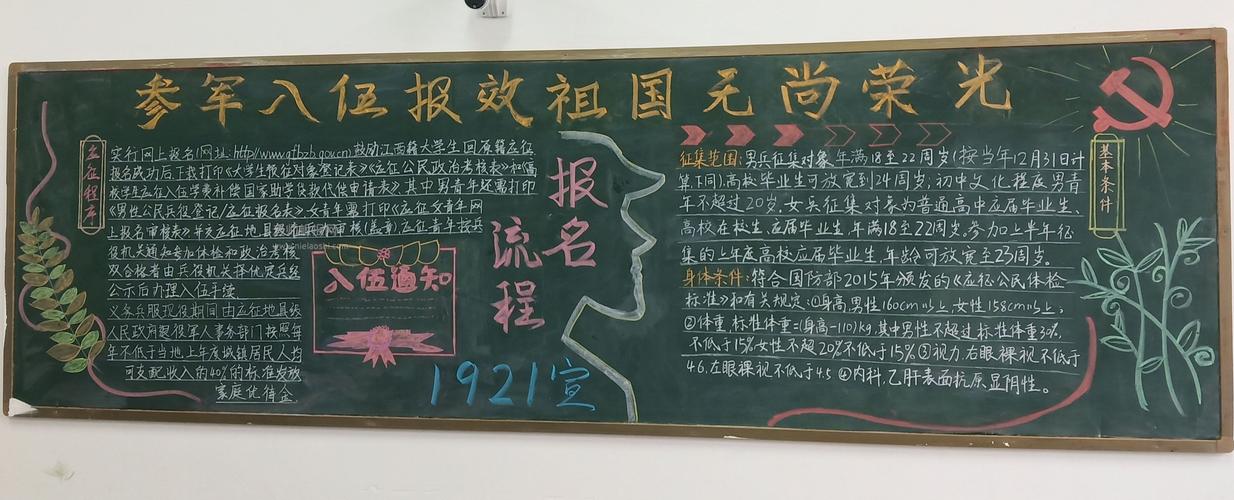 参军入伍报效祖国无尚荣光
应征程序
实行网上报名(网址:http//www.gfbzb.gov.cn)鼓励江西籍大学生回原籍应征
报名成功后下载打印《大学生预征对象登记表》《应征公民政治考核表》和《高
校学生应征入伍学费补偿国家助学贷款代偿申请表》其中男青年还需打印
《男性公民兵役登记/应征报名表》女青年需打印《应征女青年网
上报名审核表》并交应征地县级征兵办审核(盖章)应征青年按兵
役机关通知参加体检和政治考核
双合格者由兵役机关择优定兵经
公示后办理入伍手续
义务兵服现役期间由应征地县级
人民政府退役军人事务部门按照每
年不低于当地上年度城镇居民人均
可支配收入的40%的标准发放
家庭优待金.
入伍通知
报名
流程
1921宣
征集范围:男兵征集对象年满18至22周岁(按当年12月31日计
算,下同).高校毕业生可放宽到24周岁;初中文化程度男青
年不超过20岁.女兵征集对象为普通高中应届毕业生、
高校在校生、应届毕业生.年满18至22周岁.参加上半年征
集的上年度高校应届毕业生.年龄可放宽至23周岁。
身体条件:符合国防部2015年颁发的《应征公民体检
标准》和有关规定:①身高男性160cm以上女性158cm以上.
②体重标准体重=(身高-110)kg.其中男性不超过标准体重30%.
不低于15%女性不超20%不低于15%③视力.右眼裸视不低于
4.6.左眼裸视不低于4.5④内科.乙肝表面抗原显阴性。
基本条件